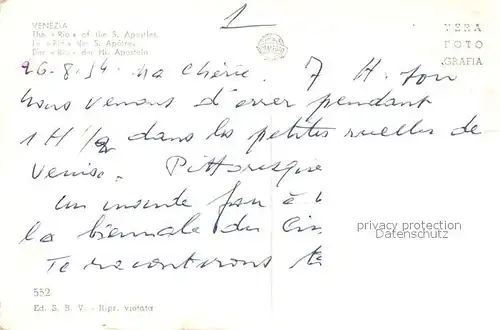 1
VENEZIA
The « Rio » of the S. Apostles.
Le « Rio » des S. Apôtres
Der « Rio » der Hl. Aposteln
VERA
FOTO
GRAFIA
26.8.54. Ma Chérie. 7 H.
Nous venons d'errer pendant
1 H 1/2 dans les petites ruelles de
Venise. Pittoresque
Un monde fou à
la biennale du Cin
Te raconterons
privacy protection
Datenschutz
552
Ed. S. B. V. - Ripr. vietata